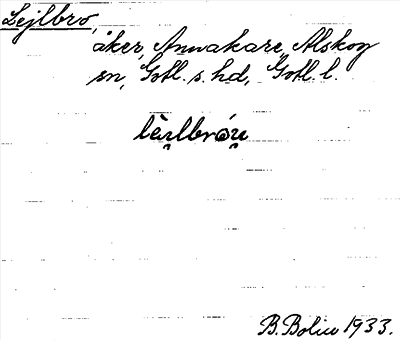 Lejlbro,
åker, Annakare, Alskog
sn, Gotl. s. hd, Gotl. l.
B. Bolin 1933.